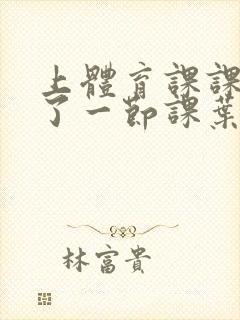 上體育課課
了一節課葉
林富貴